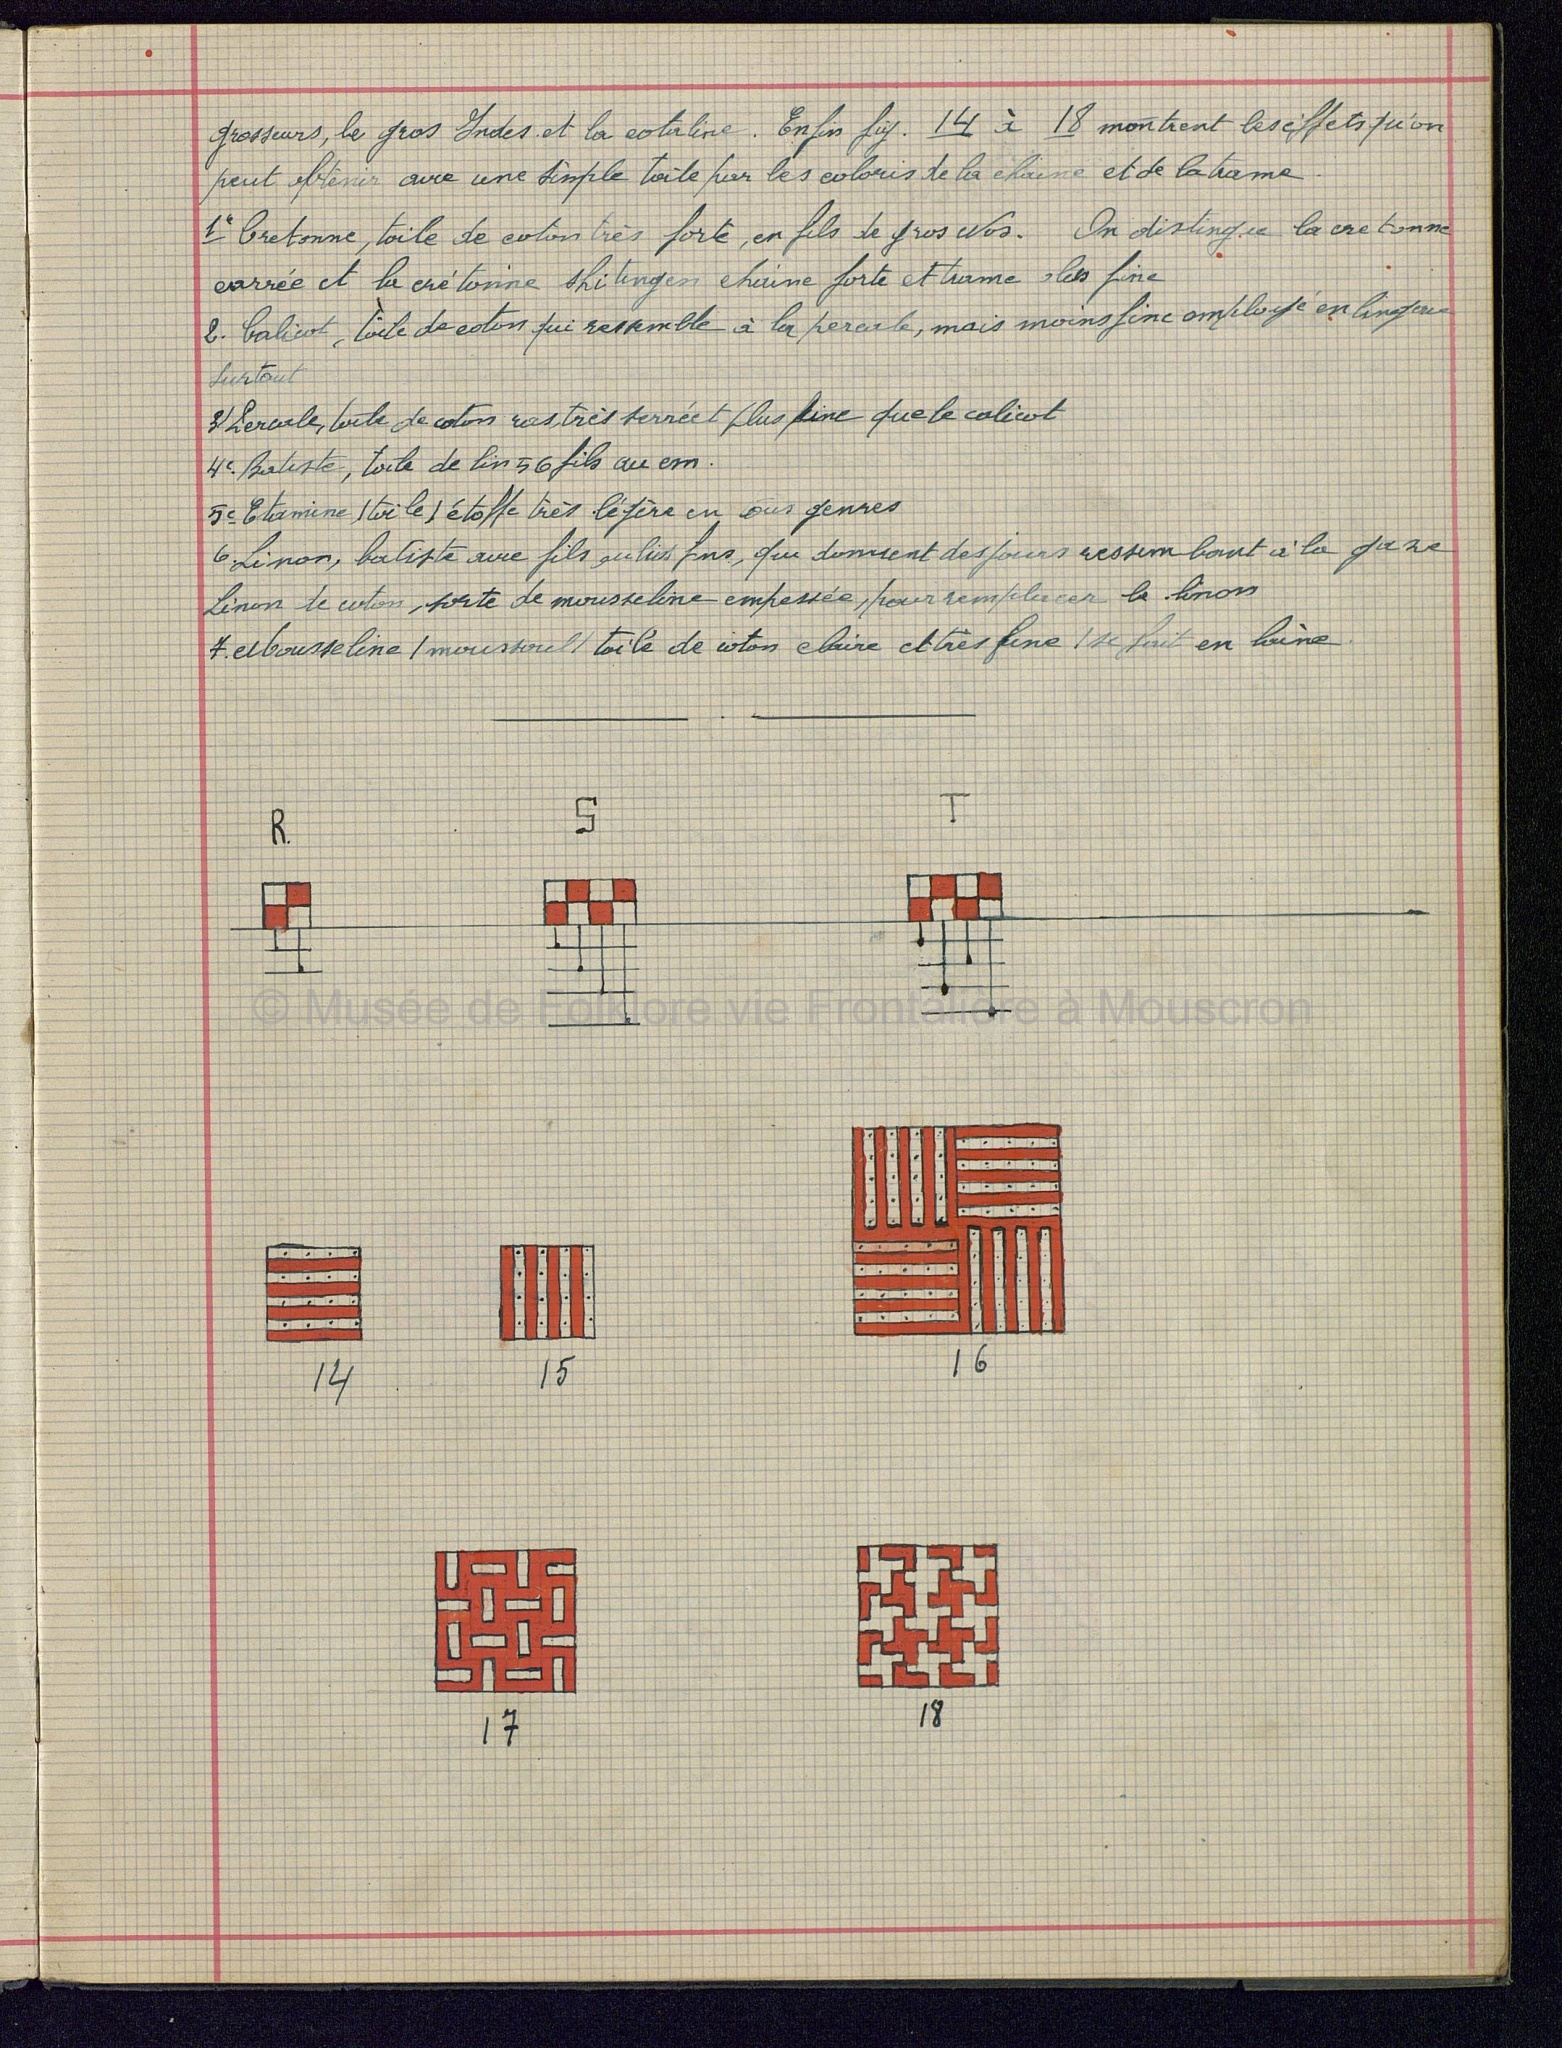 grosseurs, le gros Indes et la coteline. Enfin fig. 14 à 18 montrent les effets qu'on
peut obtenir avec une simple toile par les coloris de la chaine et de la trame.
1e Cretonne, toile de coton très forte, en fils de gros Nos. On distingue la cretonne
carrée et la crétonne chaine forte et trame plus fine
2. Calicot, toile de coton qui ressemble à la percale, mais moins fine employé en lingerie
surtout
3/ Percale, toile de coton ras, très serrée et plus fine que le calicot
4e. Batiste, toile de lin 56 fils au cm.
5e Etamine (toile) étoffe très légère en tous genres
6. Linon, batiste avec fils plus fins, qui donnent des jours ressemblant à la gaze
Linon de coton, sorte de mousseline empessée, pour remplacer le linon
7. Mousseline (moussoul) toile de coton claire et très fine (se fait en laine
R. S T
© Musée de Folklore vie Frontalière à Mouscron
14 15 16
17 18